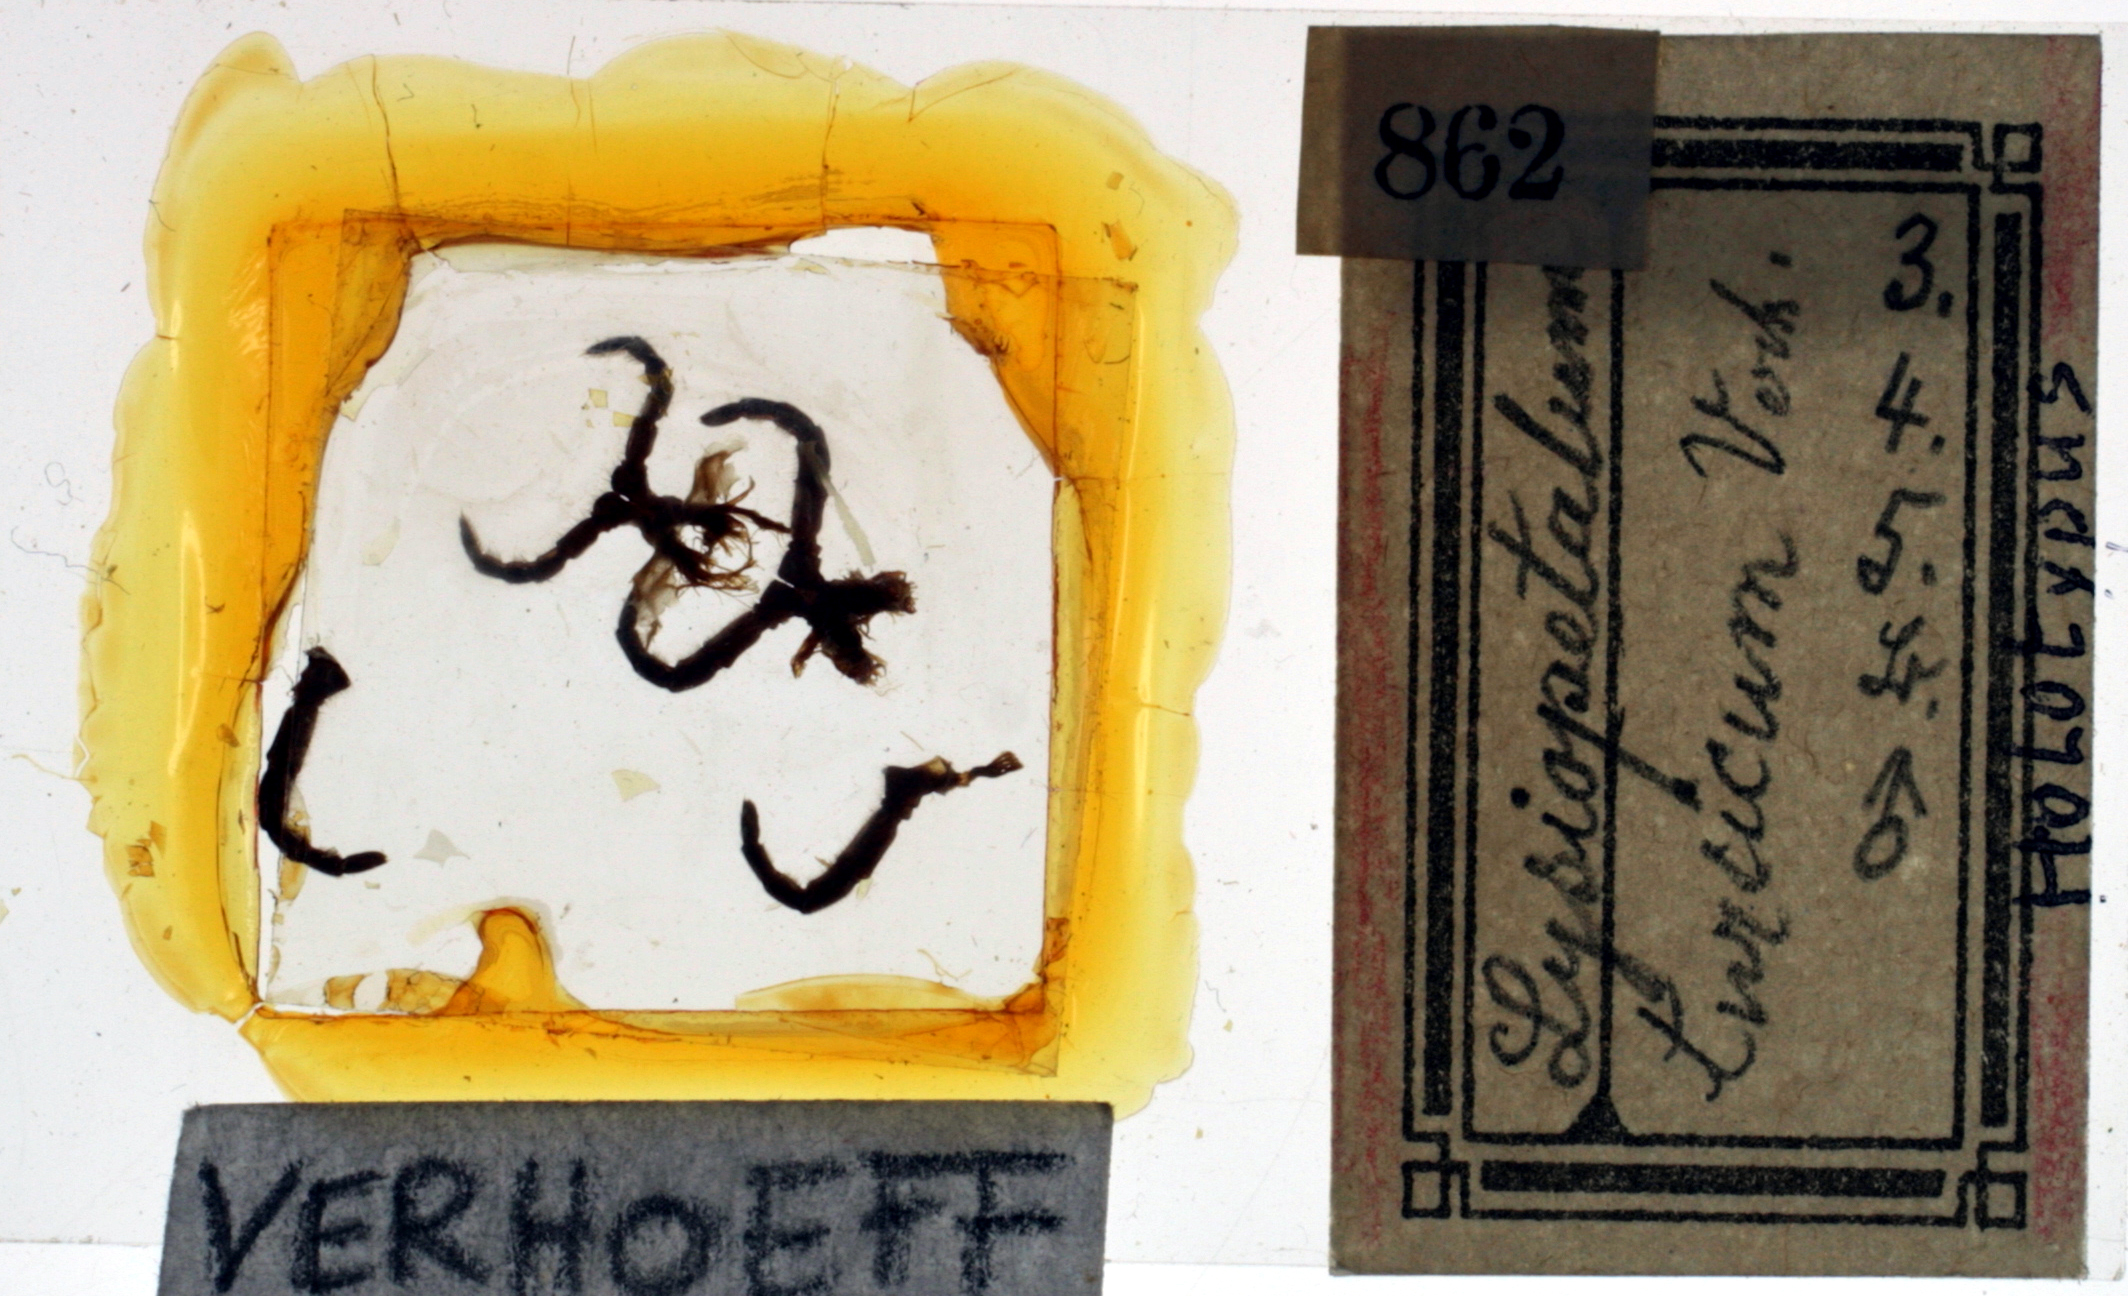 862
Lysiopetalum
turcicum Verh.
HOLOTYPUS
VERHOEFF